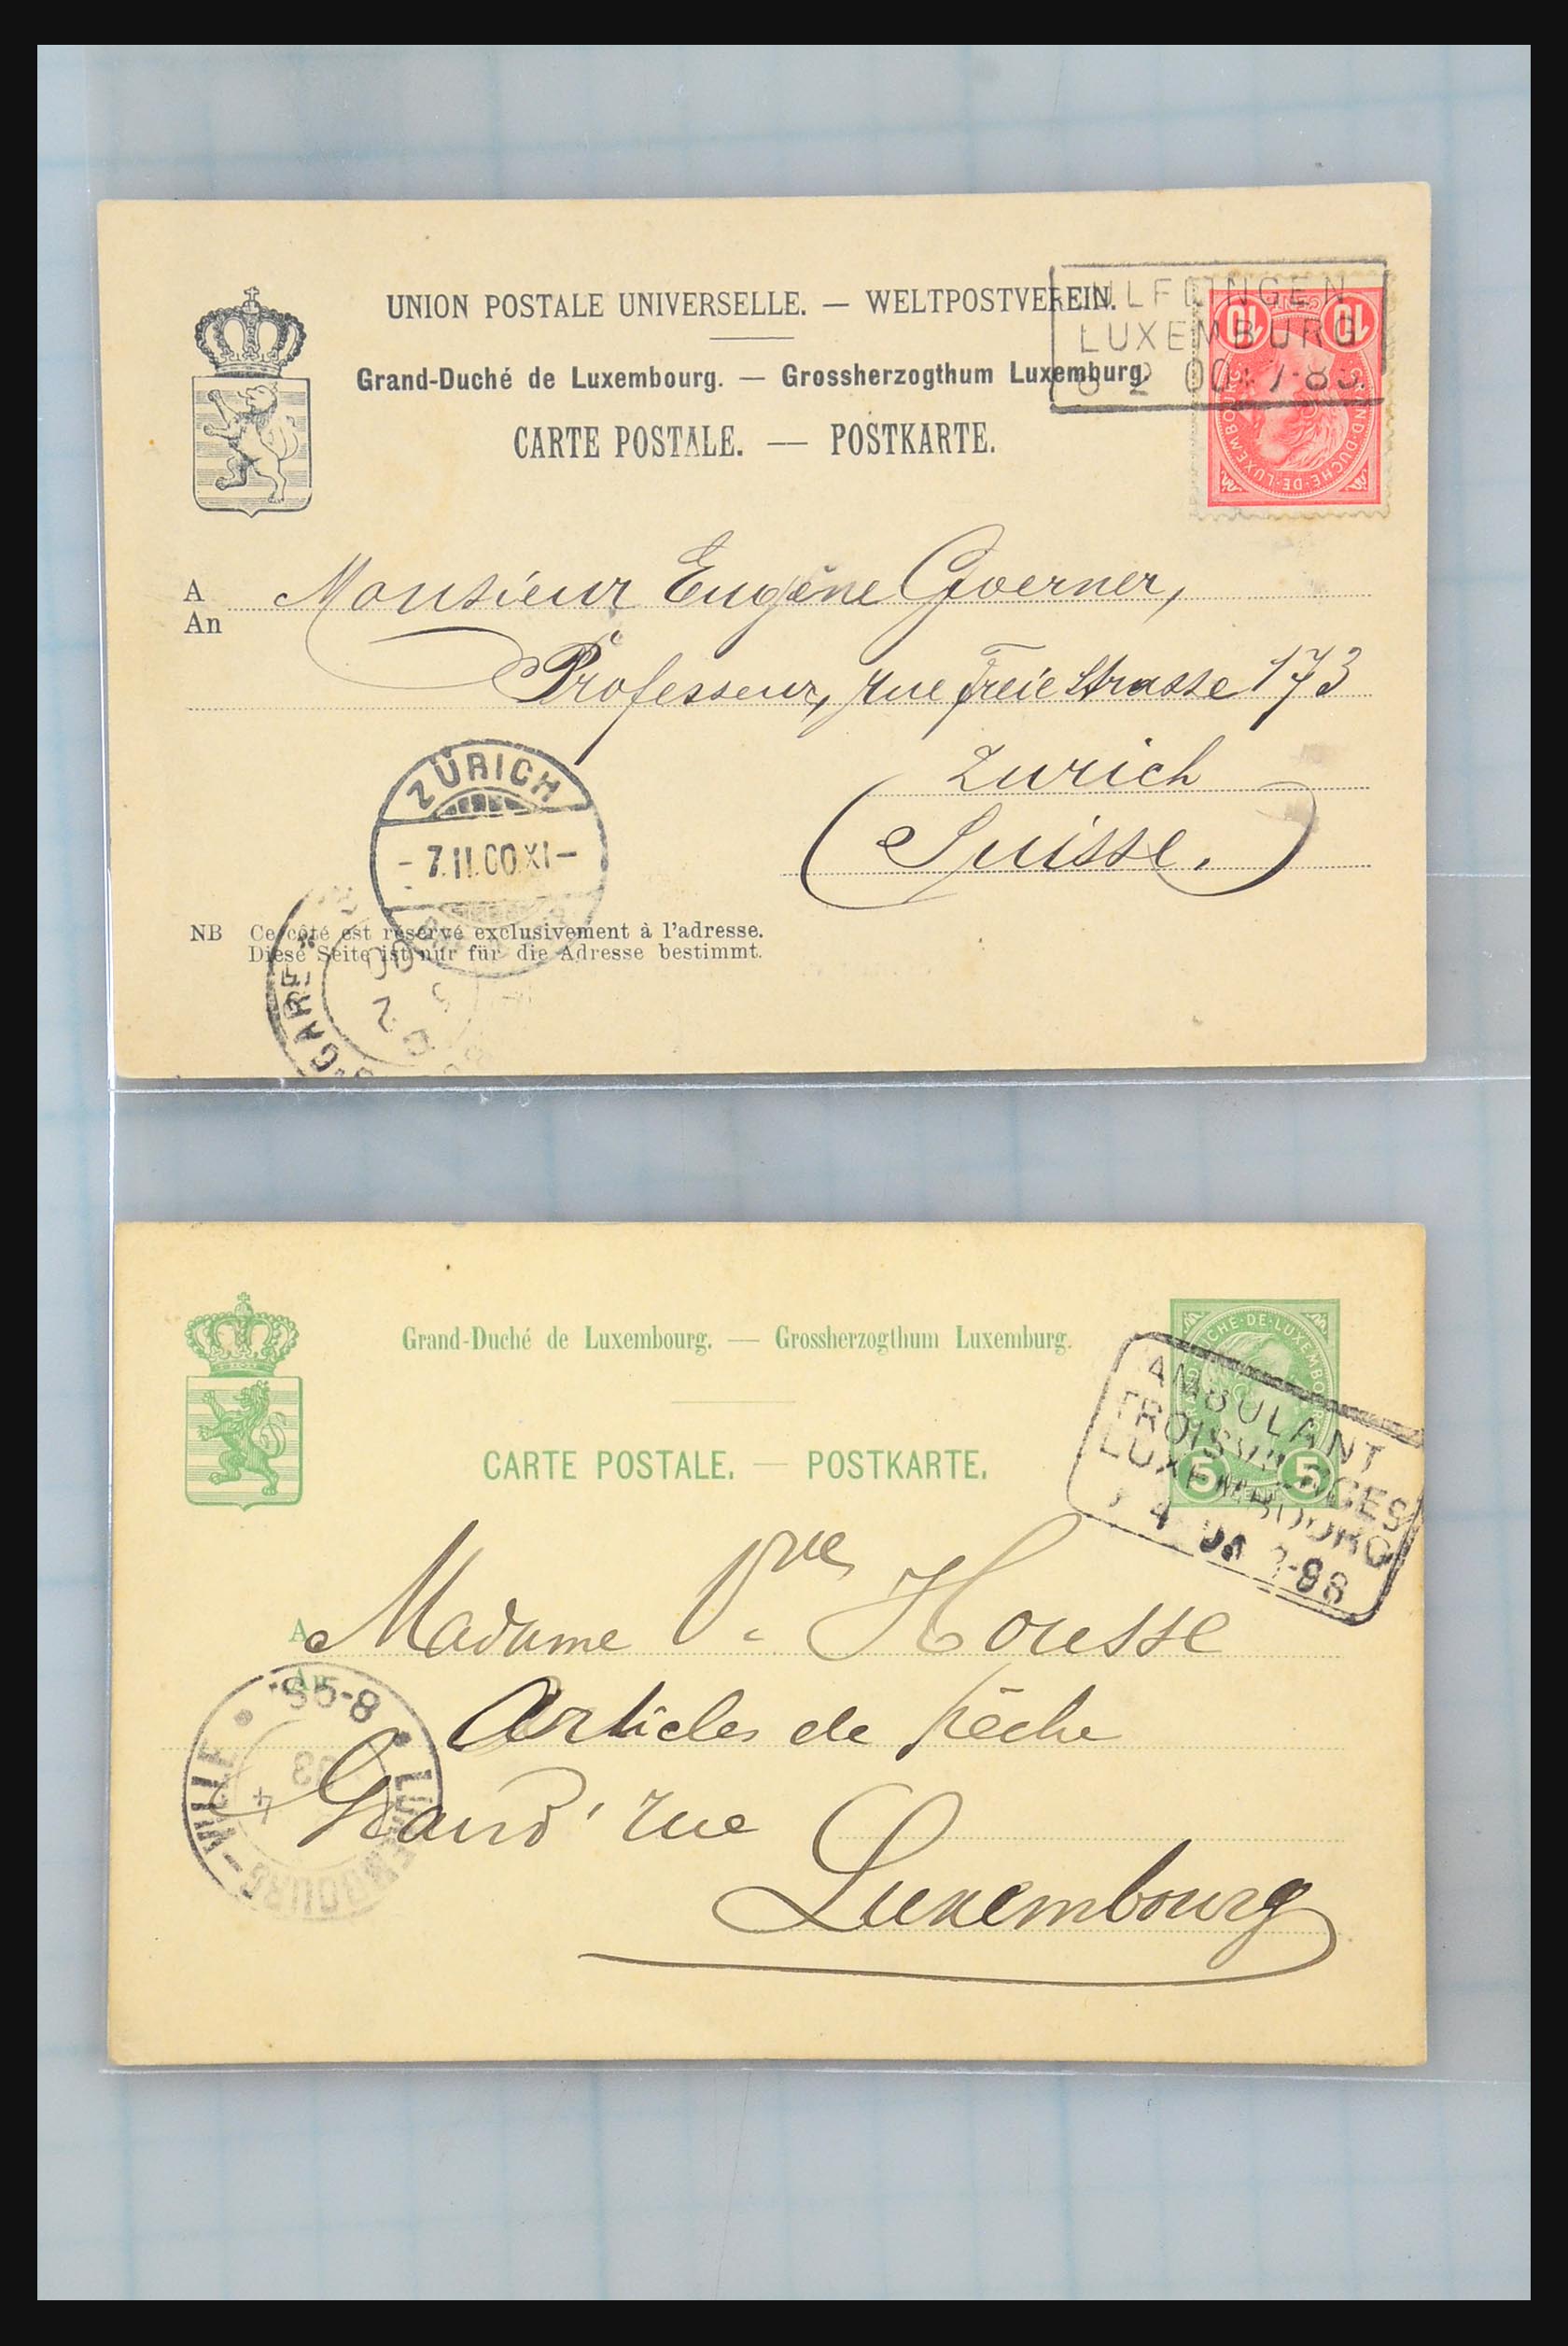 UNION POSTALE UNIVERSELLE. — WELTPOSTVEREIN.
Grand-Duché de Luxembourg. — Grossherzogthum Luxemburg.
CARTE POSTALE. — POSTKARTE.
LUXEMBURG
10 10
GRAND-DUCHÉ-DE-LUXEMBOURG
A
An
Monsieur Eugène Goerner,
Professeur, rue Freie Strasse 173
Zurich
(Suisse.)
ZÜRICH
- 7.II.00.XI -
GARE
NB Ce côté est réservé exclusivement à l'adresse.
Diese Seite ist nur für die Adresse bestimmt.
Grand-Duché de Luxembourg. — Grossherzogthum Luxemburg.
CARTE POSTALE. — POSTKARTE.
5 5
AMBULANT
TROISVIERGES
LUXEMBOURG
A
An
Madame Vve Housse
Articles de pêche
Grand' rue
Luxembourg
LUXEMBOURG-VILLE
8-9S